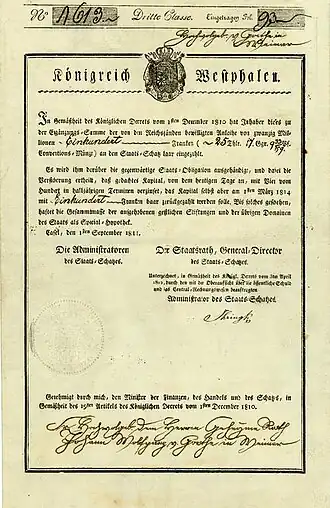 No A 613 Dritte Classe. Eingetragen Fol. 93
Hochgebol. v. Goethe in
Weimar
Königreich Westphalen.
In Gemäßheit des Königlichen Decrets vom 1sten December 1810 hat Inhaber dieses zu
der Ergänzungs-Summe der von den Reichsständen bewilligten Anleihe von zwanzig Mil-
lionen – Einhundert – Franken (– 25 Thlr. 17 Ggr.
Conventions-Münz) an den Staats-Schatz baar eingezahlt.
Es wird ihm darüber die gegenwärtige Staats-Obligation ausgehändigt, und dabei die
Versicherung ertheilt, daß gedachtes Kapital, vom heutigen Tage an, mit Vier vom
Hundert in halbjährigen Terminen verzinset, das Kapital selbst aber am 1sten März 1814
mit Einhundert Franken baar zurückgezahlt werden solle. Bis solches geschehen,
haftet die Gesammtmasse der aufgehobenen geistlichen Stiftungen und der übrigen Domainen
des Staats als Special-Hypothek.
Cassel, den 1sten September 1811.
Die Administratoren
des Staats-Schatzes.
Der Staatsrath, General-Director
des Staats-Schatzes.
Unterzeichnet, in Gemäßheit des Königl. Decrets vom
1812, durch den mit der Oberaufsicht über die öffentliche Schuld
und das Central-Rechnungswesen beauftragten
Administrator des Staats-Schatzes
Genehmigt durch mich, den Minister der Finanzen, des Handels und des Schatzes, in
Gemäßheit des 15ten Artikels des Königlichen Decrets vom 1sten December 1810.
Sr. Hochwohlgeb. dem Herren Geheimen Rath
Johann Wolfgang v. Goethe in Weimar